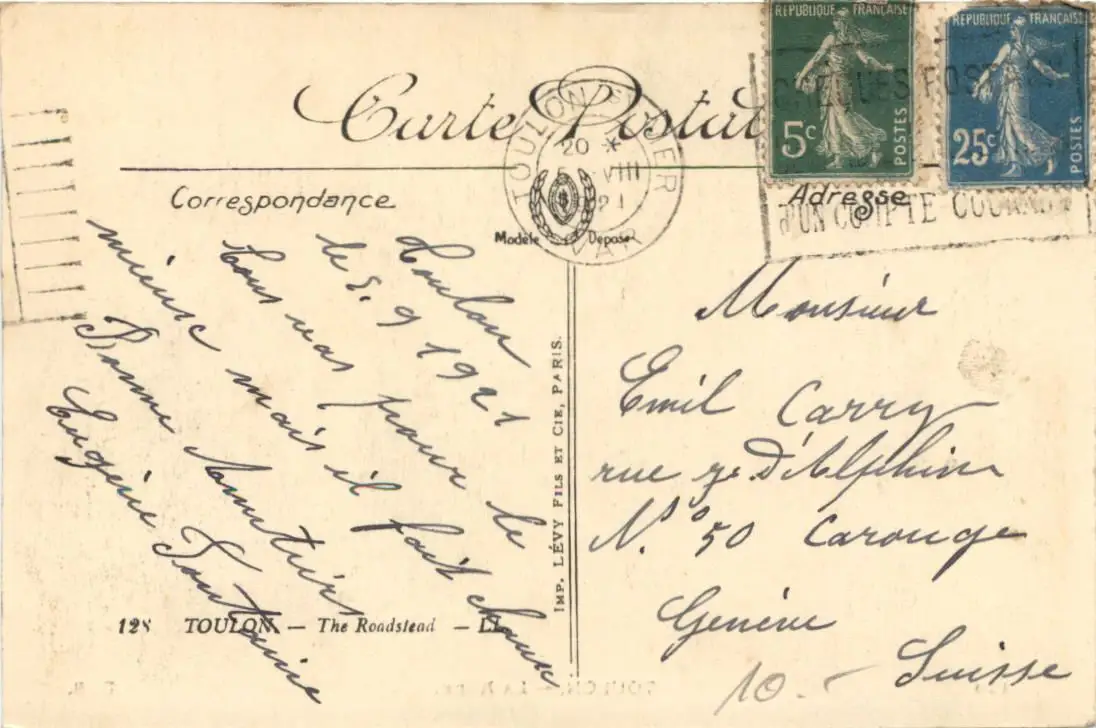 Carte Postale
RÉPUBLIQUE FRANÇAISE
5c
POSTES
RÉPUBLIQUE FRANÇAISE
25c
POSTES
CHEQUES POSTAUX
D'UN COMPTE COURANT
TOULON S MER
20 *
VIII
21
VAR
Correspondance
Modèle Déposé
Adresse
Toulon
le 5. 9 1921
Tous vas pour le
mieux mais il fait chaux
Bonne
Eugénie
Monsieur
Emil Carry
rue
N.° 50 Carouge
Genève
Suisse
10.-
IMP. LÉVY FILS ET CIE, PARIS.
128 TOULON. — The Roadstead — LL.